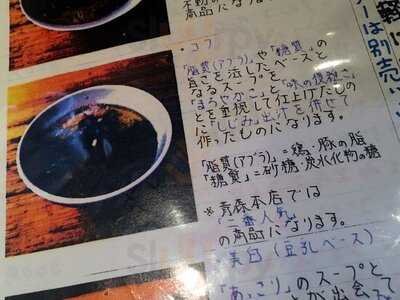 商品になり
・コク
「脂質(アブラ)」や「糖質」の
旨さを活したベースと
なるスープを
「まろやかこ」と「味の複雑こ」
とを重視して仕上げたもの
に「しじみ」出汁を併せて
作ったものになります。
「脂質(アブラ)」=鶏・豚の脂
「糖質」=砂糖・炭水化物の糖
※青森本店では
「二番人気」
の商品になります。
美白(豆乳ベース)
「あっさり」のスープと
が出会
は別売